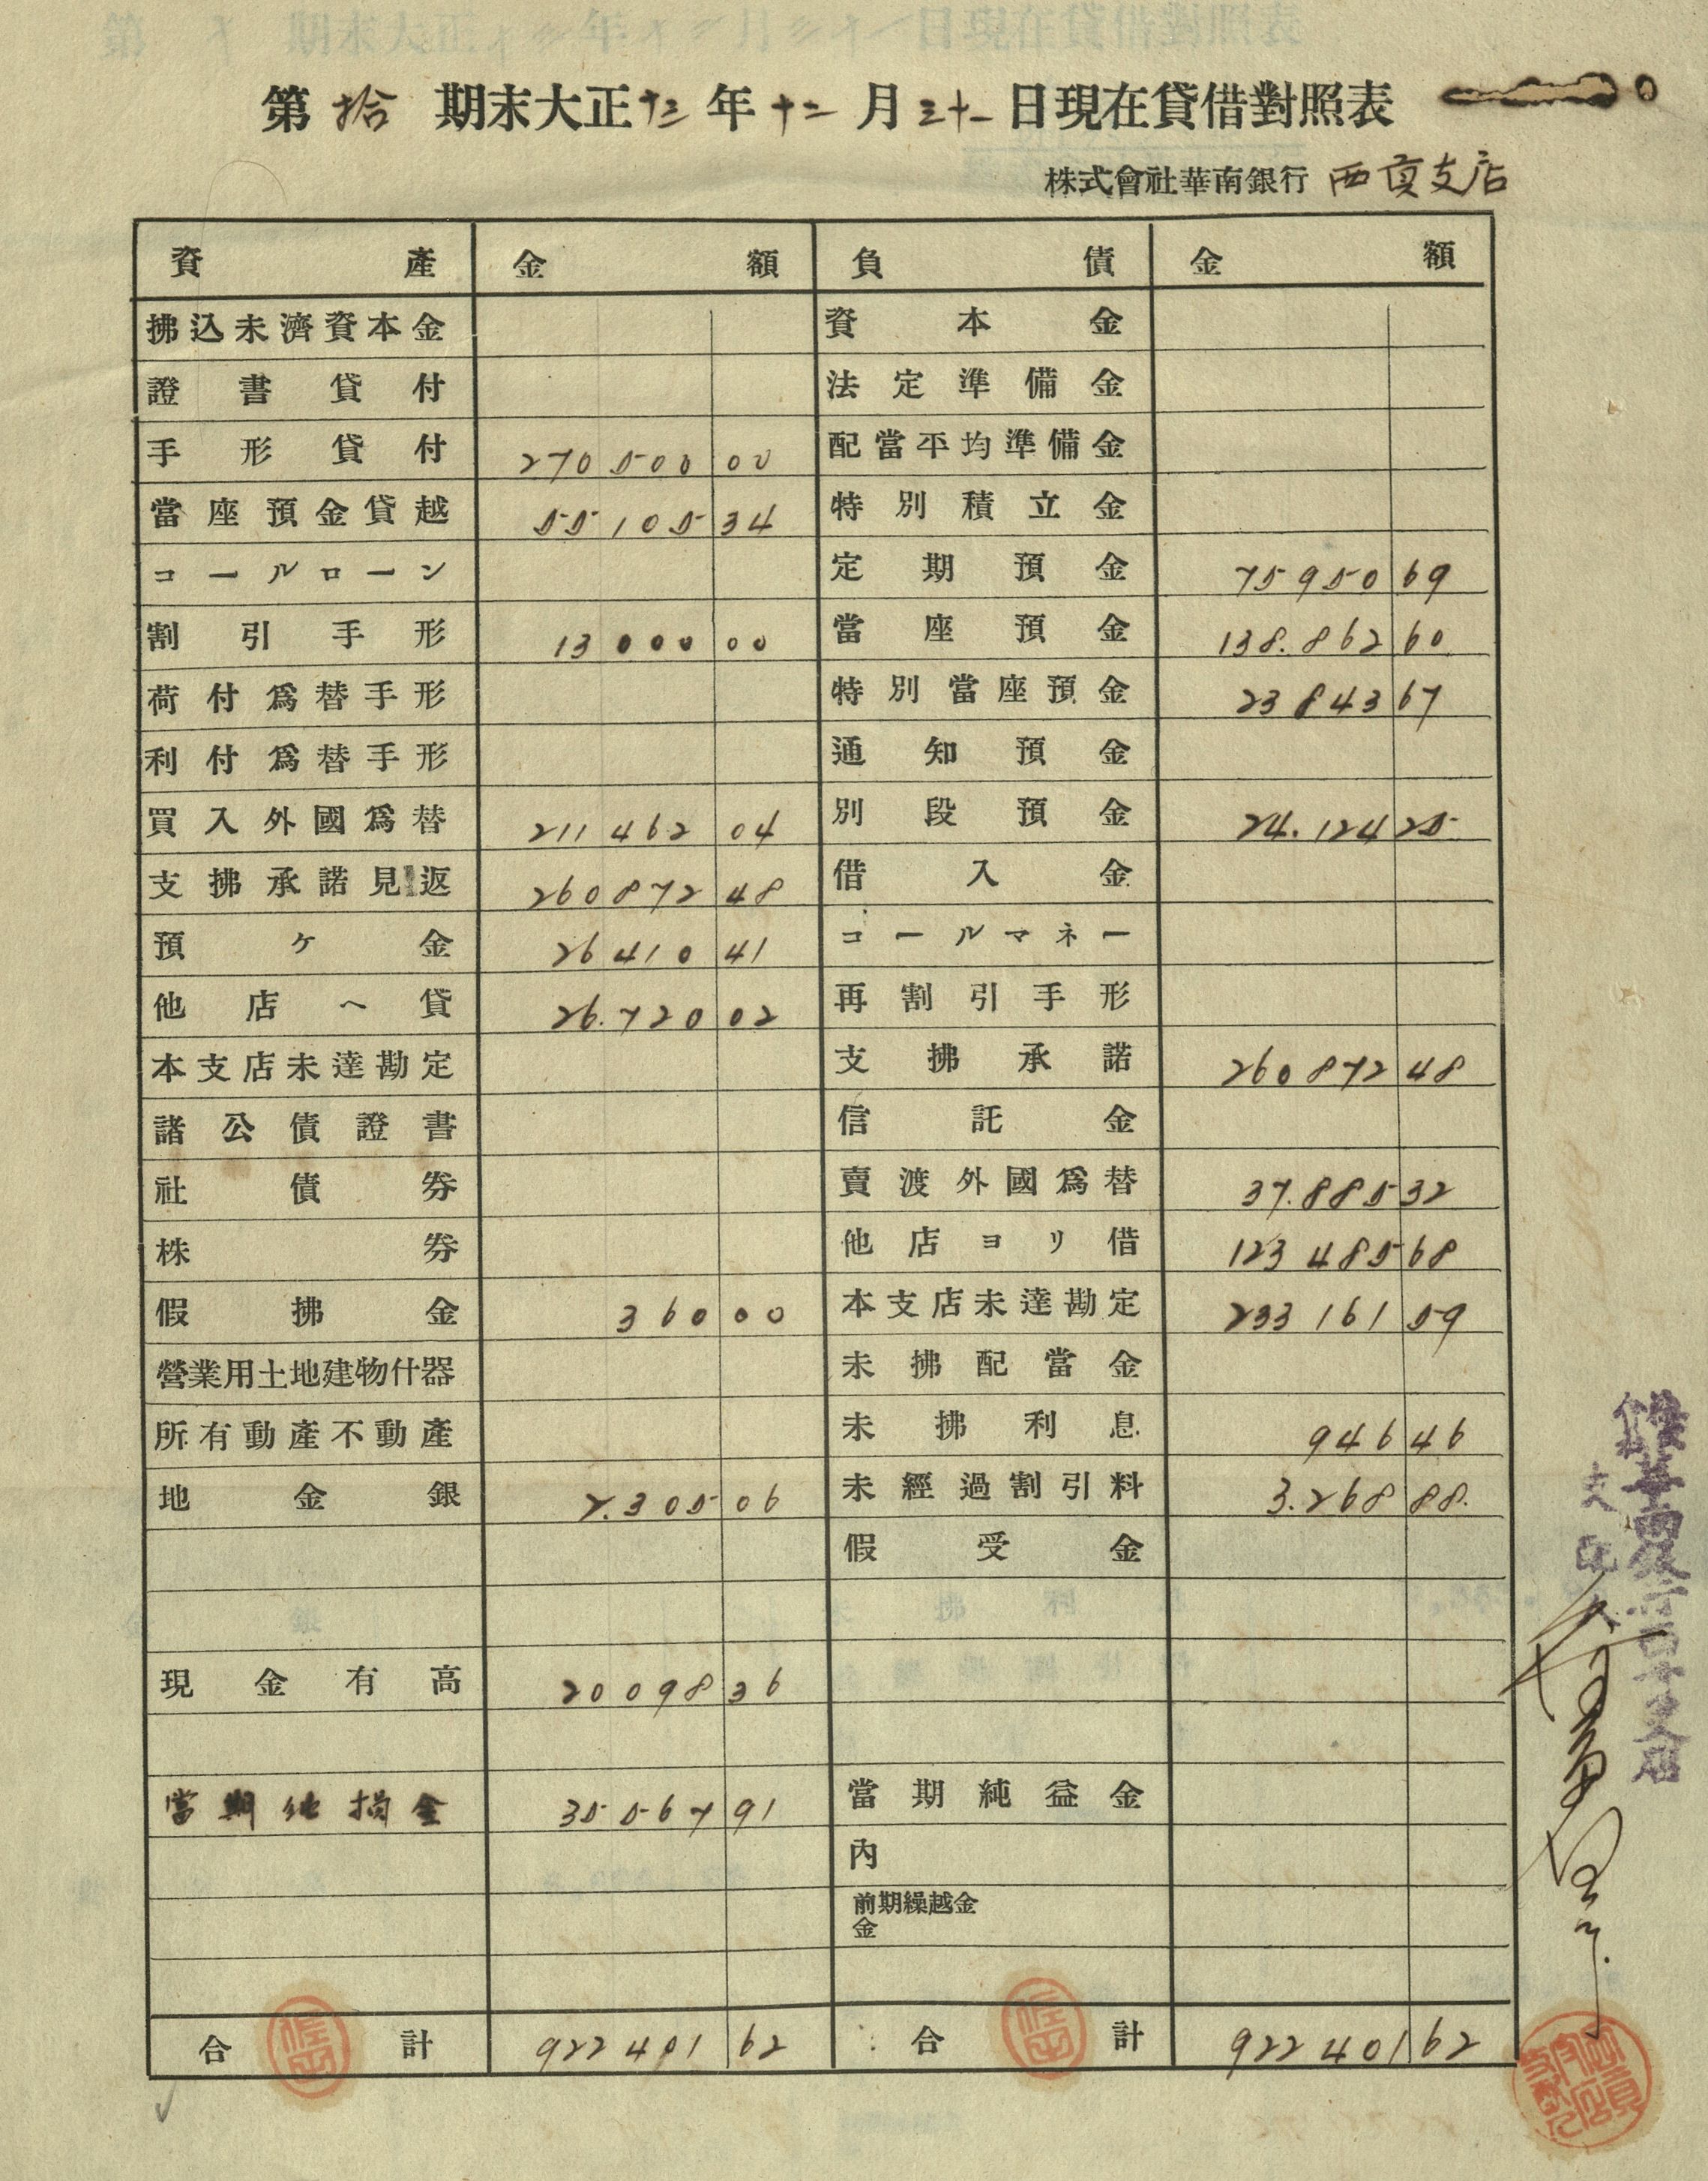 第 拾 期末大正十三年十二月三十一日現在貸借對照表
株式會社華南銀行 西貢支店
資產 金額 負債 金額
拂込未濟資本金 資本金
證書貸付 法定準備金
手形貸付 270 500 00 配當平均準備金
當座預金貸越 55 105 34 特別積立金
コールローン 定期預金 75 950 69
割引手形 13 000 00 當座預金 138.862 60
荷付爲替手形 特別當座預金 23 843 67
利付爲替手形 通知預金
買入外國爲替 211 462 04 別段預金 24.124 25
支拂承諾見返 260 872 48 借入金
預ケ金 26 410 41 コールマネー
他店へ貸 26.720 02 再割引手形
本支店未達勘定 支拂承諾 260 872 48
諸公債證書 信託金
社債券 賣渡外國爲替 37.885 32
株券 他店ヨリ借 123 485 68
假拂金 360 00 本支店未達勘定 233 161 59
營業用土地建物什器 未拂配當金
所有動產不動產 未拂利息 946 46
地金銀 2.305 06 未經過割引料 3.268 88.
假受金
現金有高 20 098 36
當期純損金 35 567 91 當期純益金
內
前期繰越金
金
合計 922 401 62 合計 922 401 62